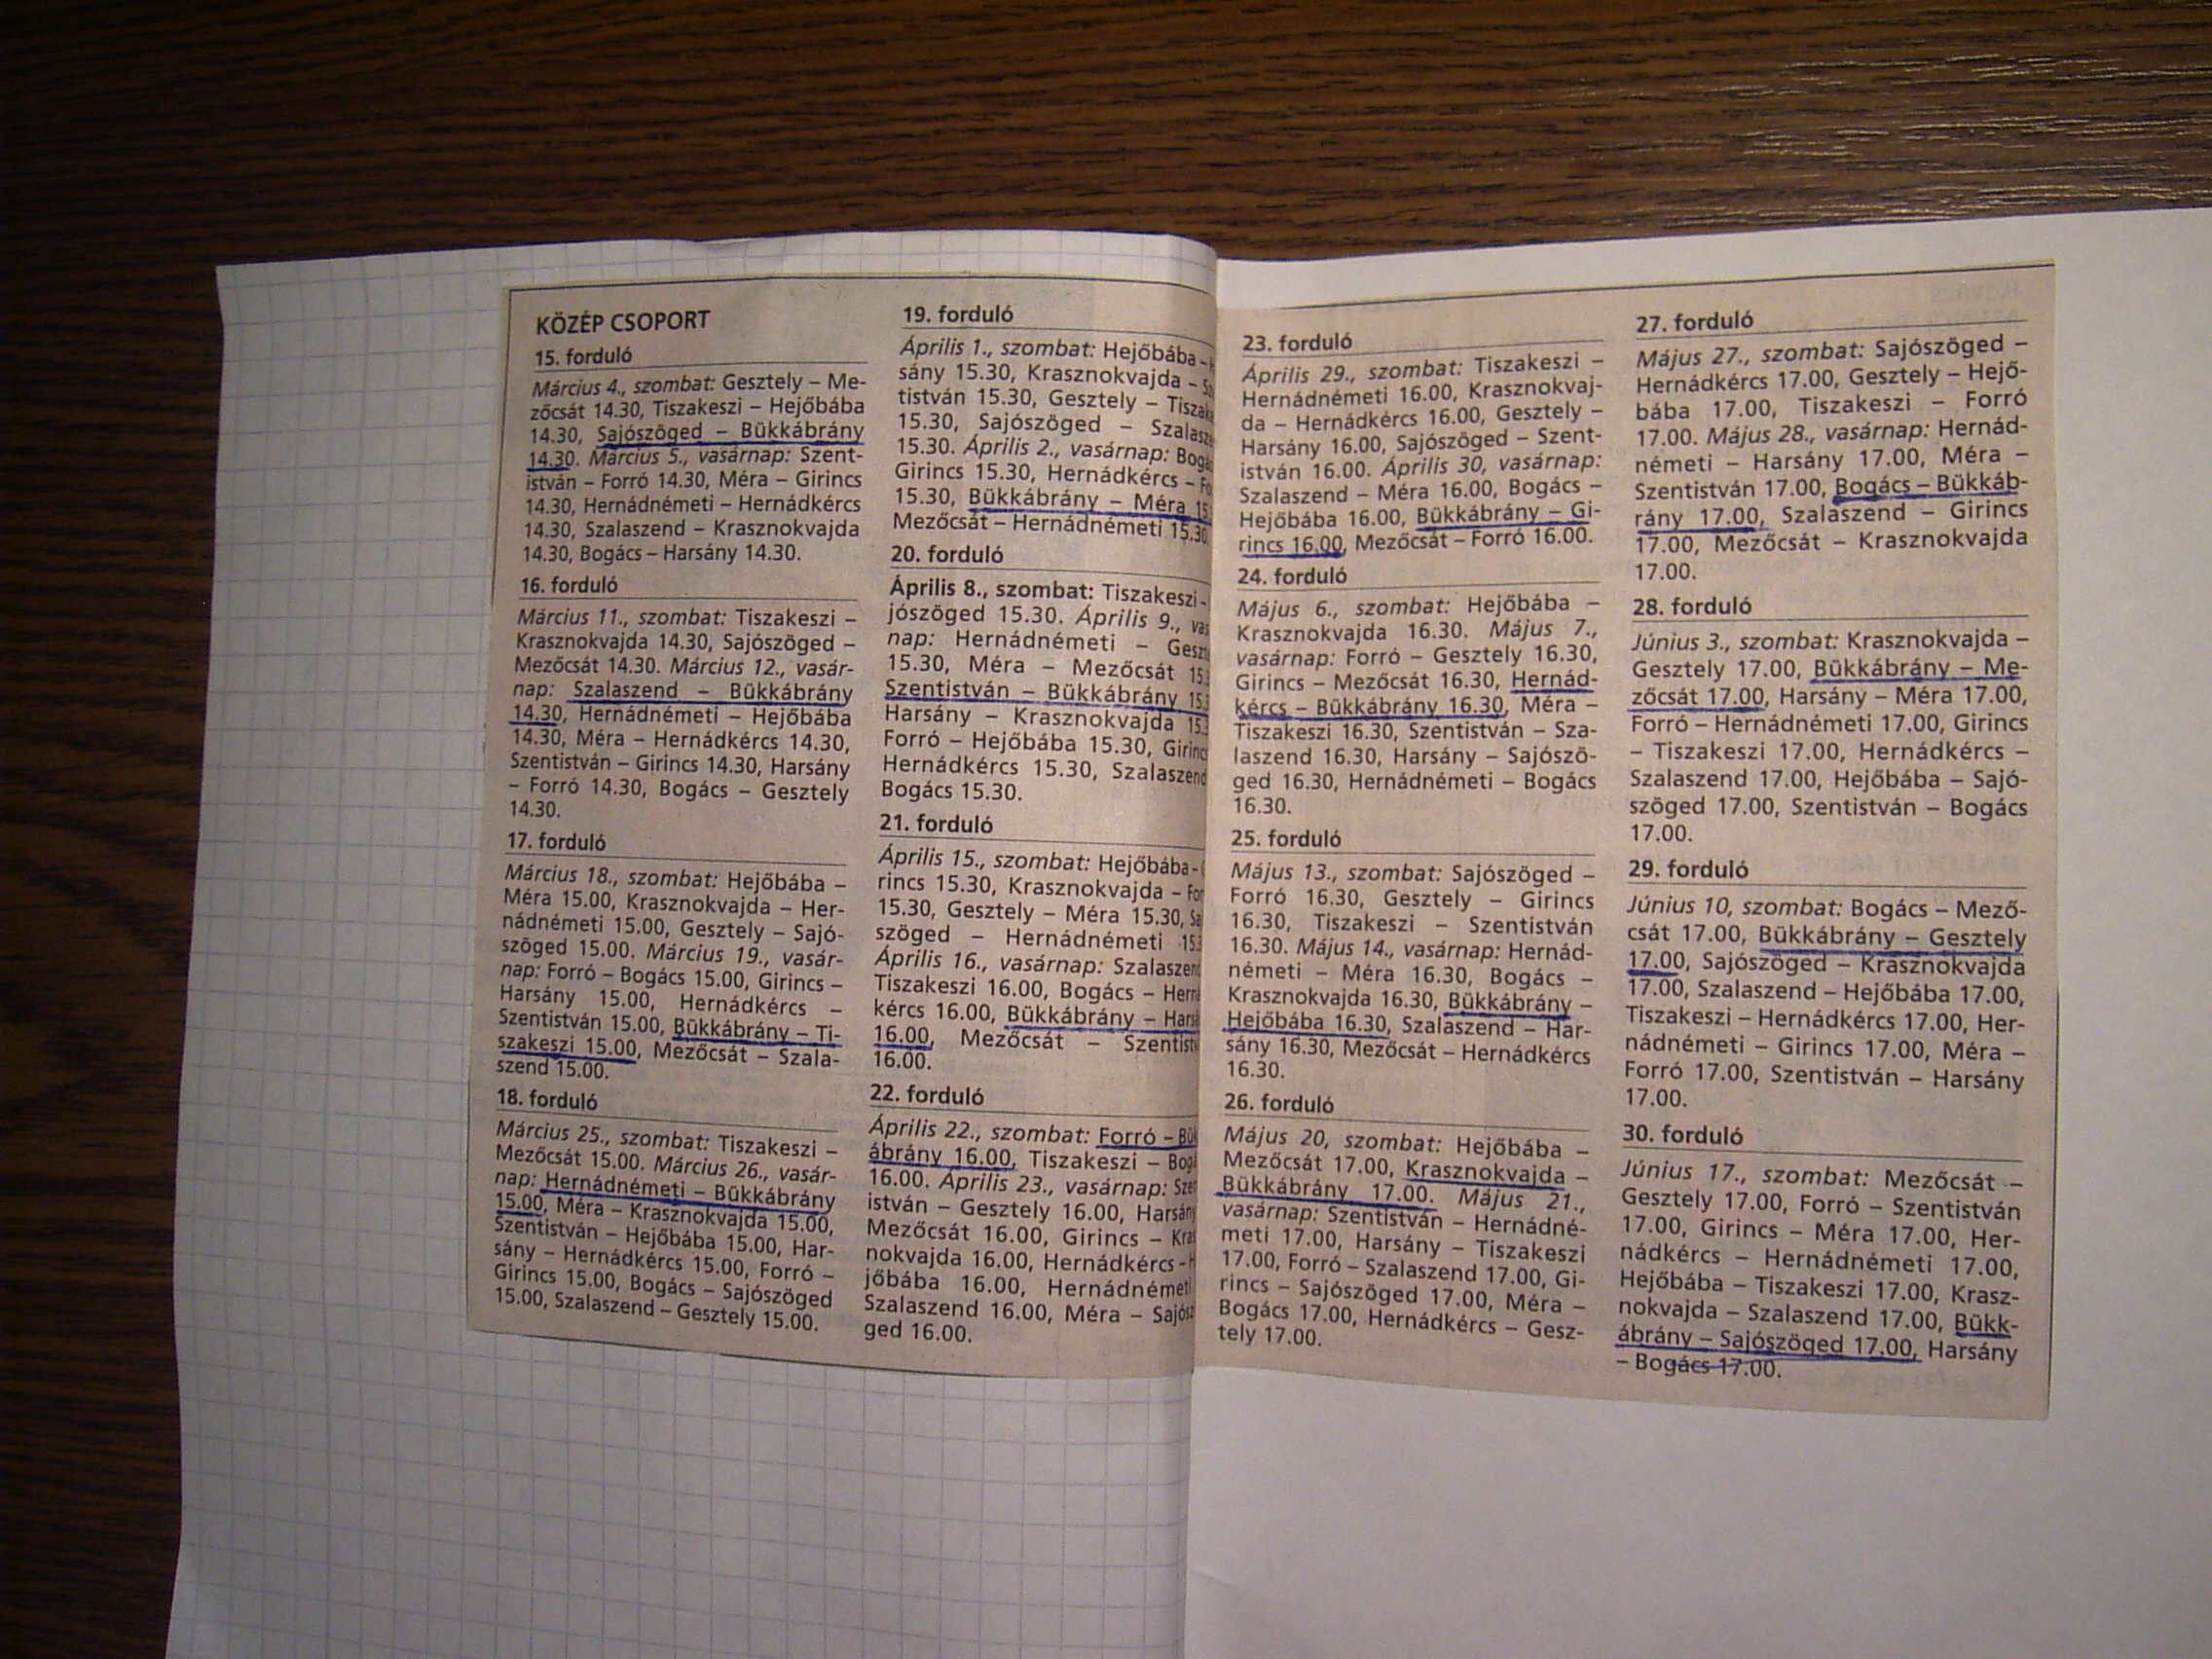 KÖZÉP CSOPORT
15. forduló
Március 4., szombat: Gesztely – Me-
zőcsát 14.30, Tiszakeszi – Hejőbába
14.30, Sajószöged – Bükkábrány
14.30. Március 5., vasárnap: Szent-
istván – Forró 14.30, Méra – Girincs
14.30, Hernádnémeti – Hernádkércs
14.30, Szalaszend – Krasznokvajda
14.30, Bogács – Harsány 14.30.
16. forduló
Március 11., szombat: Tiszakeszi –
Krasznokvajda 14.30, Sajószöged –
Mezőcsát 14.30. Március 12., vasár-
nap: Szalaszend – Bükkábrány
14.30, Hernádnémeti – Hejőbába
14.30, Méra – Hernádkércs 14.30,
Szentistván – Girincs 14.30, Harsány
– Forró 14.30, Bogács – Gesztely
14.30.
17. forduló
Március 18., szombat: Hejőbába –
Méra 15.00, Krasznokvajda – Her-
nádnémeti 15.00, Gesztely – Sajó-
szöged 15.00. Március 19., vasár-
nap: Forró – Bogács 15.00, Girincs –
Harsány 15.00, Hernádkércs –
Szentistván 15.00, Bükkábrány – Ti-
szakeszi 15.00, Mezőcsát – Szala-
szend 15.00.
18. forduló
Március 25., szombat: Tiszakeszi –
Mezőcsát 15.00. Március 26., vasár-
nap: Hernádnémeti – Bükkábrány
15.00, Méra – Krasznokvajda 15.00,
Szentistván – Hejőbába 15.00, Har-
sány – Hernádkércs 15.00, Forró –
Girincs 15.00, Bogács – Sajószöged
15.00, Szalaszend – Gesztely 15.00.
19. forduló
Április 1., szombat: Hejőbába –
sány 15.30, Krasznokvajda –
tistván 15.30, Gesztely –
15.30, Sajószöged –
15.30. Április 2., vasárnap:
Girincs 15.30, Hernádkércs –
15.30, Bükkábrány – Méra
Mezőcsát – Hernádnémeti 15.30
20. forduló
Április 8., szombat: Tiszakeszi –
jószöged 15.30. Április 9.,
nap: Hernádnémeti –
15.30, Méra – Mezőcsát
Szentistván – Bükkábrány
Harsány – Krasznokvajda
Forró – Hejőbába 15.30,
Hernádkércs 15.30, Szalaszend
Bogács 15.30.
21. forduló
Április 15., szombat: Hejőbába –
rincs 15.30, Krasznokvajda –
15.30, Gesztely – Méra 15.30,
szöged – Hernádnémeti
Április 16., vasárnap:
Tiszakeszi 16.00, Bogács –
kércs 16.00, Bükkábrány –
16.00, Mezőcsát –
16.00.
22. forduló
Április 22., szombat: Forró –
ábrány 16.00, Tiszakeszi –
16.00. Április 23., vasárnap:
István – Gesztely 16.00, Harsány
Mezőcsát 16.00, Girincs –
nokvajda 16.00, Hernádkércs –
jőbába 16.00, Hernádnémeti
Szalaszend 16.00, Méra –
ged 16.00.
23. forduló
Április 29., szombat: Tiszakeszi –
Hernádnémeti 16.00, Krasznokvaj-
da – Hernádkércs 16.00, Gesztely –
Harsány 16.00, Sajószöged – Szent-
istván 16.00. Április 30, vasárnap:
Szalaszend – Méra 16.00, Bogács –
Hejőbába 16.00, Bükkábrány – Gi-
rincs 16.00, Mezőcsát – Forró 16.00.
24. forduló
Május 6., szombat: Hejőbába –
Krasznokvajda 16.30. Május 7.,
vasárnap: Forró – Gesztely 16.30,
Girincs – Mezőcsát 16.30, Hernád-
kércs – Bükkábrány 16.30, Méra –
Tiszakeszi 16.30, Szentistván – Sza-
laszend 16.30, Harsány – Sajószö-
ged 16.30, Hernádnémeti – Bogács
16.30.
25. forduló
Május 13., szombat: Sajószöged –
Forró 16.30, Gesztely – Girincs
16.30, Tiszakeszi – Szentistván
16.30. Május 14., vasárnap: Hernád-
németi – Méra 16.30, Bogács –
Krasznokvajda 16.30, Bükkábrány –
Hejőbába 16.30, Szalaszend – Har-
sány 16.30, Mezőcsát – Hernádkércs
16.30.
26. forduló
Május 20, szombat: Hejőbába –
Mezőcsát 17.00, Krasznokvajda –
Bükkábrány 17.00. Május 21.,
vasárnap: Szentistván – Hernádné-
meti 17.00, Harsány – Tiszakeszi
17.00, Forró – Szalaszend 17.00, Gi-
rincs – Sajószöged 17.00, Méra –
Bogács 17.00, Hernádkércs – Gesz-
tely 17.00.
27. forduló
Május 27., szombat: Sajószöged –
Hernádkércs 17.00, Gesztely – Hejő-
bába 17.00, Tiszakeszi – Forró
17.00. Május 28., vasárnap: Hernád-
németi – Harsány 17.00, Méra –
Szentistván 17.00, Bogács – Bükkáb-
rány 17.00, Szalaszend – Girincs
17.00, Mezőcsát – Krasznokvajda
17.00.
28. forduló
Június 3., szombat: Krasznokvajda –
Gesztely 17.00, Bükkábrány – Me-
zőcsát 17.00, Harsány – Méra 17.00,
Forró – Hernádnémeti 17.00, Girincs
– Tiszakeszi 17.00, Hernádkércs –
Szalaszend 17.00, Hejőbába – Sajó-
szöged 17.00, Szentistván – Bogács
17.00.
29. forduló
Június 10, szombat: Bogács – Mező-
csát 17.00, Bükkábrány – Gesztely
17.00, Sajószöged – Krasznokvajda
17.00, Szalaszend – Hejőbába 17.00,
Tiszakeszi – Hernádkércs 17.00, Her-
nádnémeti – Girincs 17.00, Méra –
Forró 17.00, Szentistván – Harsány
17.00.
30. forduló
Június 17., szombat: Mezőcsát –
Gesztely 17.00, Forró – Szentistván
17.00, Girincs – Méra 17.00, Her-
nádkércs – Hernádnémeti 17.00,
Hejőbába – Tiszakeszi 17.00, Krasz-
nokvajda – Szalaszend 17.00, Bükk-
ábrány – Sajószöged 17.00, Harsány
– Bogács 17.00.